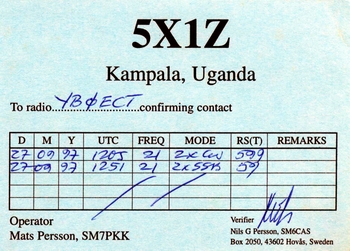 5X1Z
Kampala, Uganda
To radio YBØECT confirming contact
D M Y UTC FREQ MODE RS(T) REMARKS
27 09 97 1205 21 2xCW 599
27 09 97 1251 21 2xSSB 59
Operator
Mats Persson, SM7PKK
Verifier
Nils G Persson, SM6CAS
Box 2050, 43602 Hovås, Sweden